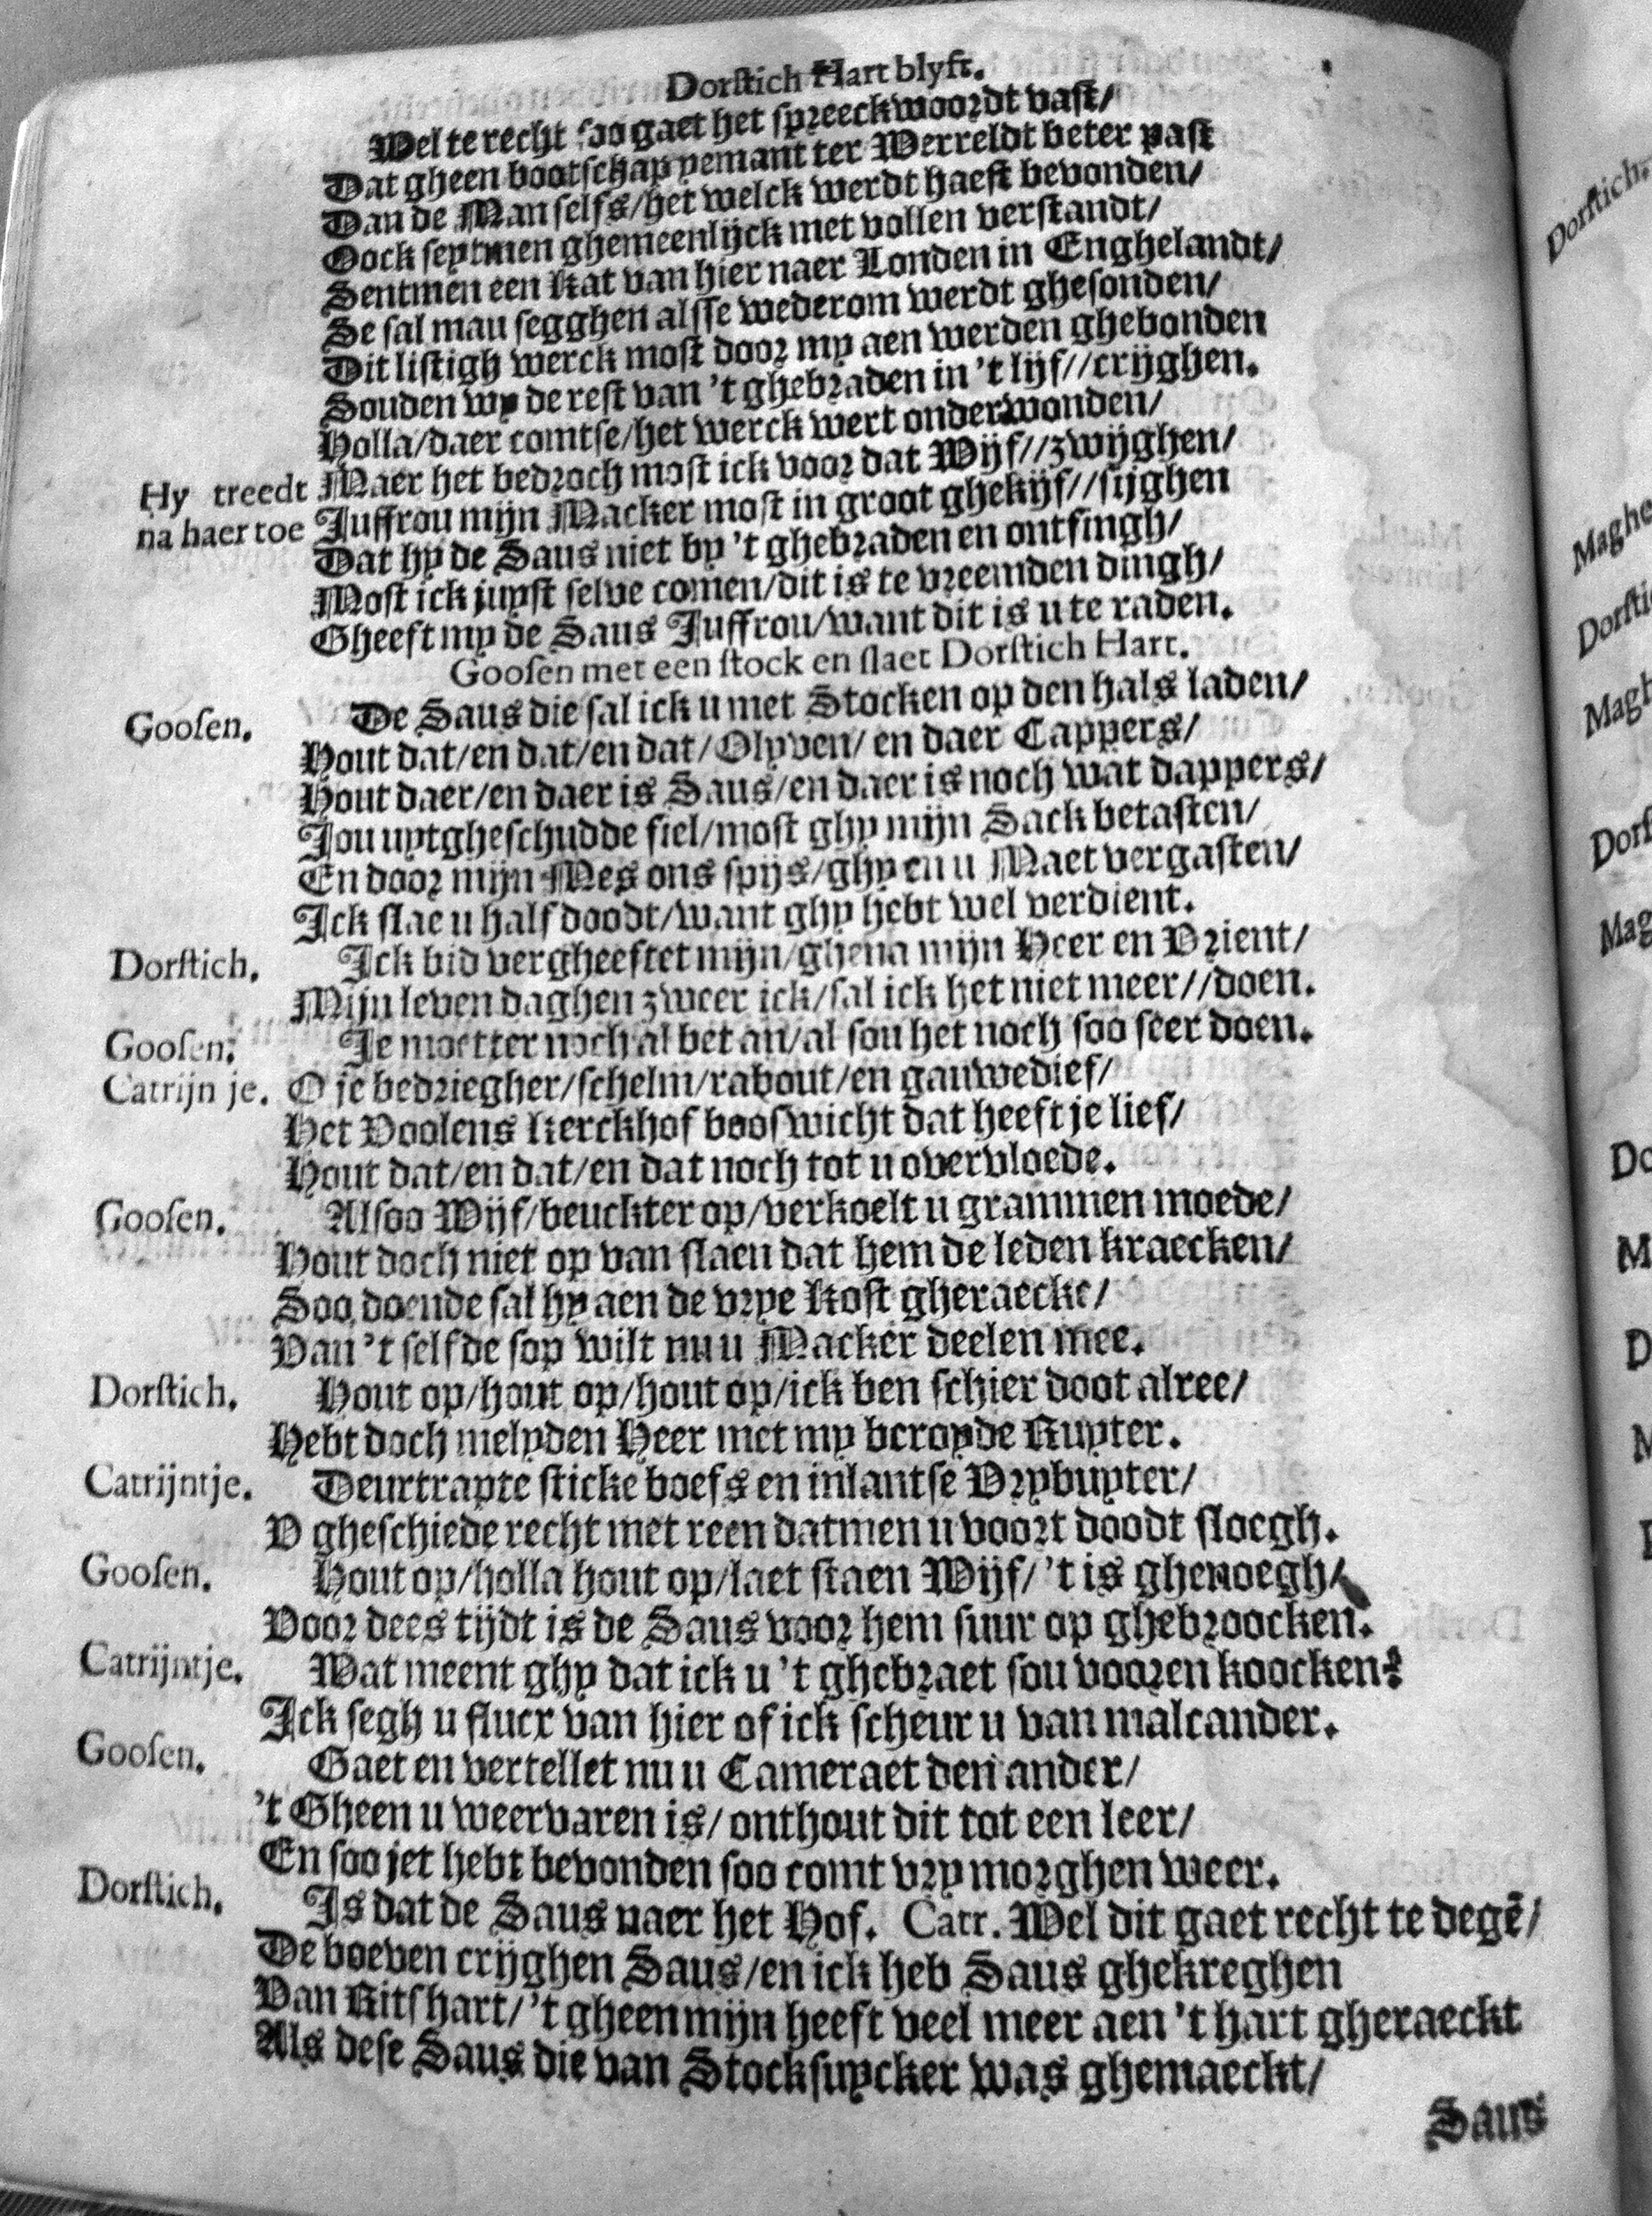 Dorstich Hart blyft.
Wel te recht soo gaet het spreeckwoordt vast/
Dat gheen bootschap yemant ter Werreldt beter past
Dan de Man selfs/het welck werdt haest bevonden/
Oock seytmen ghemeenlijck met vollen verstandt/
Sentmen een Kat van hier naer Londen in Enghelandt/
Se sal mau segghen alsse wederom werdt ghesonden/
Dit listigh werck most door my aen werden ghebonden
Souden wy de rest van 't ghebraden in 't lijf//crijghen.
Holla/daer comtse/het werck wert onderwonden/
Hy treedt Maer het bedroch most ick voor dat Wijf//zwijghen/
na haer toe Juffrou mijn Macker most in groot ghekijf//sijghen
Dat hy de Saus niet by 't ghebraden en ontfingh/
Most ick juyst selve comen/dit is te vreemden dingh/
Gheeft my de Saus Juffrou/want dit is u te raden.
Goosen met een stock en slaet Dorstich Hart.
Goosen. De Saus die sal ick u met Stocken op den hals laden/
Hout dat/en dat/en dat/Olyven/ en daer Cappers/
Hout daer/en daer is Saus/en daer is noch wat dappers/
Jou uytgheschudde fiel/most ghy mijn Sack betasten/
En door mijn Mes ons spijs/ghy en u Maet vergasten/
Ick slae u half doodt/want ghy hebt wel verdient.
Dorstich. Ick bid vergheeftet mijn/ghena mijn Heer en Vrient/
Mijn leven daghen zweer ick/sal ick het niet meer//doen.
Goosen. Je moetter noch al bet an/al sou het noch soo seer doen.
Catrijn je. O je bedriegher/schelm/rabout/en gauwedief/
Het Voolens Kerckhof booswicht dat heeft je lief/
Hout dat/en dat/en dat noch tot u overvloede.
Goosen. Alsoo Wijf/beuckter op/verkoelt u grammen moede/
Hout doch niet op van slaen dat hem de leden kraecken/
Soo doende sal hy aen de vrye Kost gheraecke/
Van 't selfde sop wilt nu u Macker deelen mee.
Dorstich. Hout op/hout op/hout op/ick ben schier doot alree/
Hebt doch melyden Heer met my beroyde Ruyter.
Catrijntje. Deurtrapte sticke boefs en inlantse Vrybuyter/
V gheschiede recht met reen datmen u voort doodt sloegh.
Goosen. Hout op/holla hout op/laet staen Wijf/'t is ghenoegh/
Voor dees tijdt is de Saus voor hem suur op ghebroocken.
Catrijntje. Wat meent ghy dat ick u 't ghebraet sou vooren koocken?
Ick segh u flucx van hier of ick scheur u van malcander.
Goosen. Gaet en vertellet nu u Cameraet den ander/
't Gheen u weervaren is/ onthout dit tot een leer/
En soo jet hebt bevonden soo comt vry morghen weer.
Dorstich. Is dat de Saus naer het Hof. Catr. Wel dit gaet recht te degē/
De boeven crijghen Saus/en ick heb Saus ghekreghen
Van Ritshart/'t gheen mijn heeft veel meer aen 't hart gheraeckt
Als dese Saus die van Stocksuycker was ghemaeckt/
Saus
Dorstich.